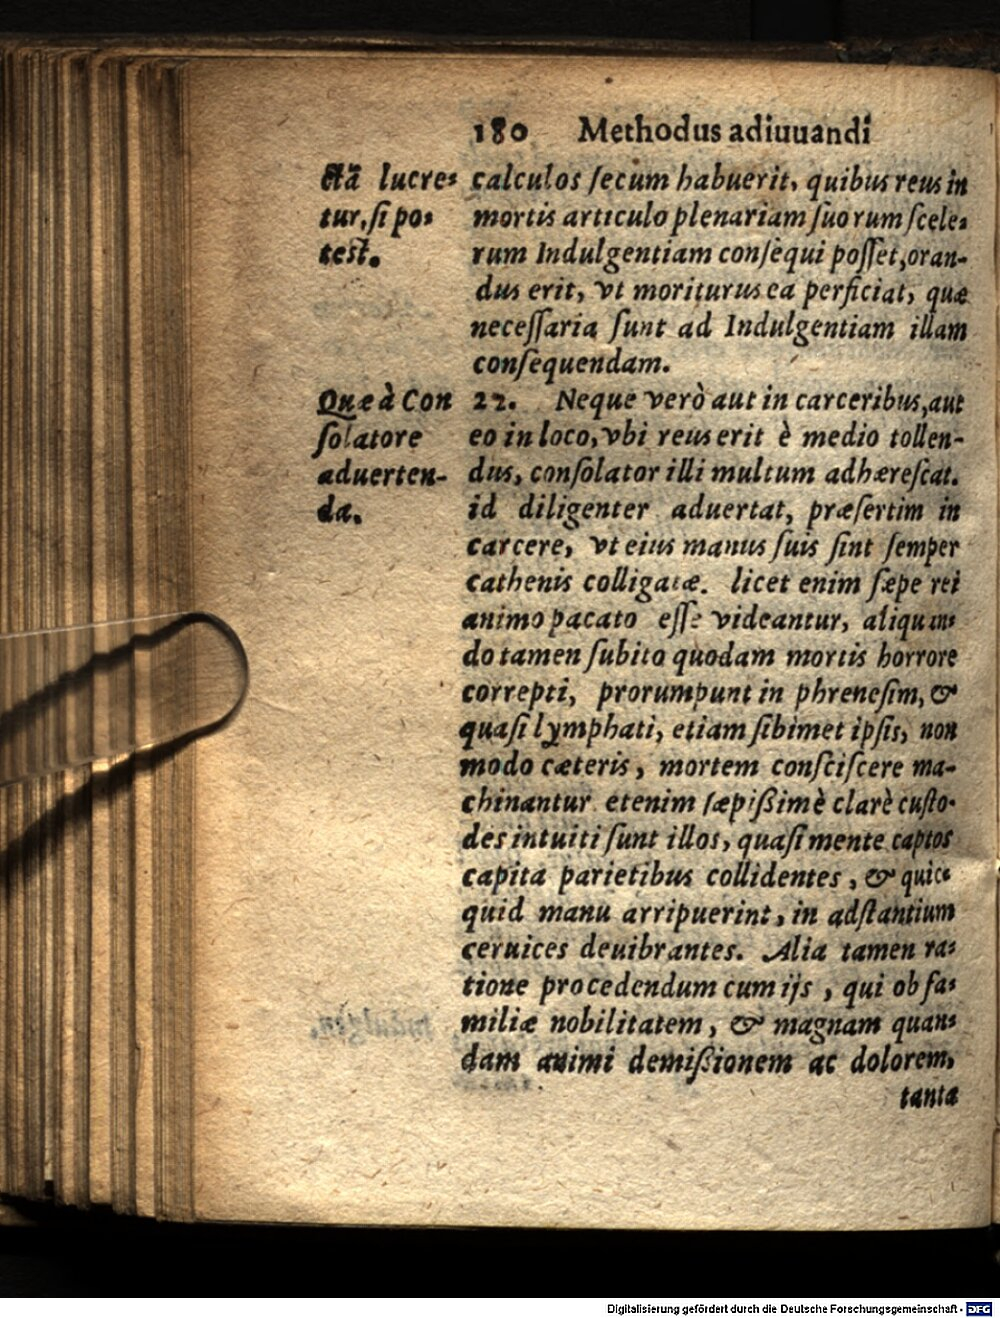 180 Methodus adiuuandi
ctã lucre-
tur, si po-
test.
calculos secum habuerit, quibus reus in
mortis articulo plenariam suorum scele-
rum Indulgentiam consequi posset, oran-
dus erit, vt moriturus ea perficiat, quæ
necessaria sunt ad Indulgentiam illam
consequendam.
Quæ à Con
solatore
aduerten-
da.
22. Neque verò aut in carceribus, aut
eo in loco, vbi reus erit è medio tollen-
dus, consolator illi multum adhærescat.
id diligenter aduertat, præsertim in
carcere, vt eius manus suis sint semper
cathenis colligatæ. licet enim sæpe rei
animo pacato esse videantur, aliquan-
do tamen subito quodam mortis horrore
correpti, prorumpunt in phrenesim, &
quasi lymphati, etiam sibimet ipsis, non
modo cæteris, mortem consciscere ma-
chinantur etenim sæpißimè clarè custo-
des intuiti sunt illos, quasi mente captos
capita parietibus collidentes, & quic-
quid manu arripuerint, in adstantium
ceruices deuibrantes. Alia tamen ra-
tione procedendum cum ijs, qui ob fa-
miliæ nobilitatem, & magnam quan-
dam animi demißionem ac dolorem,
tanta
Digitalisierung gefördert durch die Deutsche Forschungsgemeinschaft - DFG